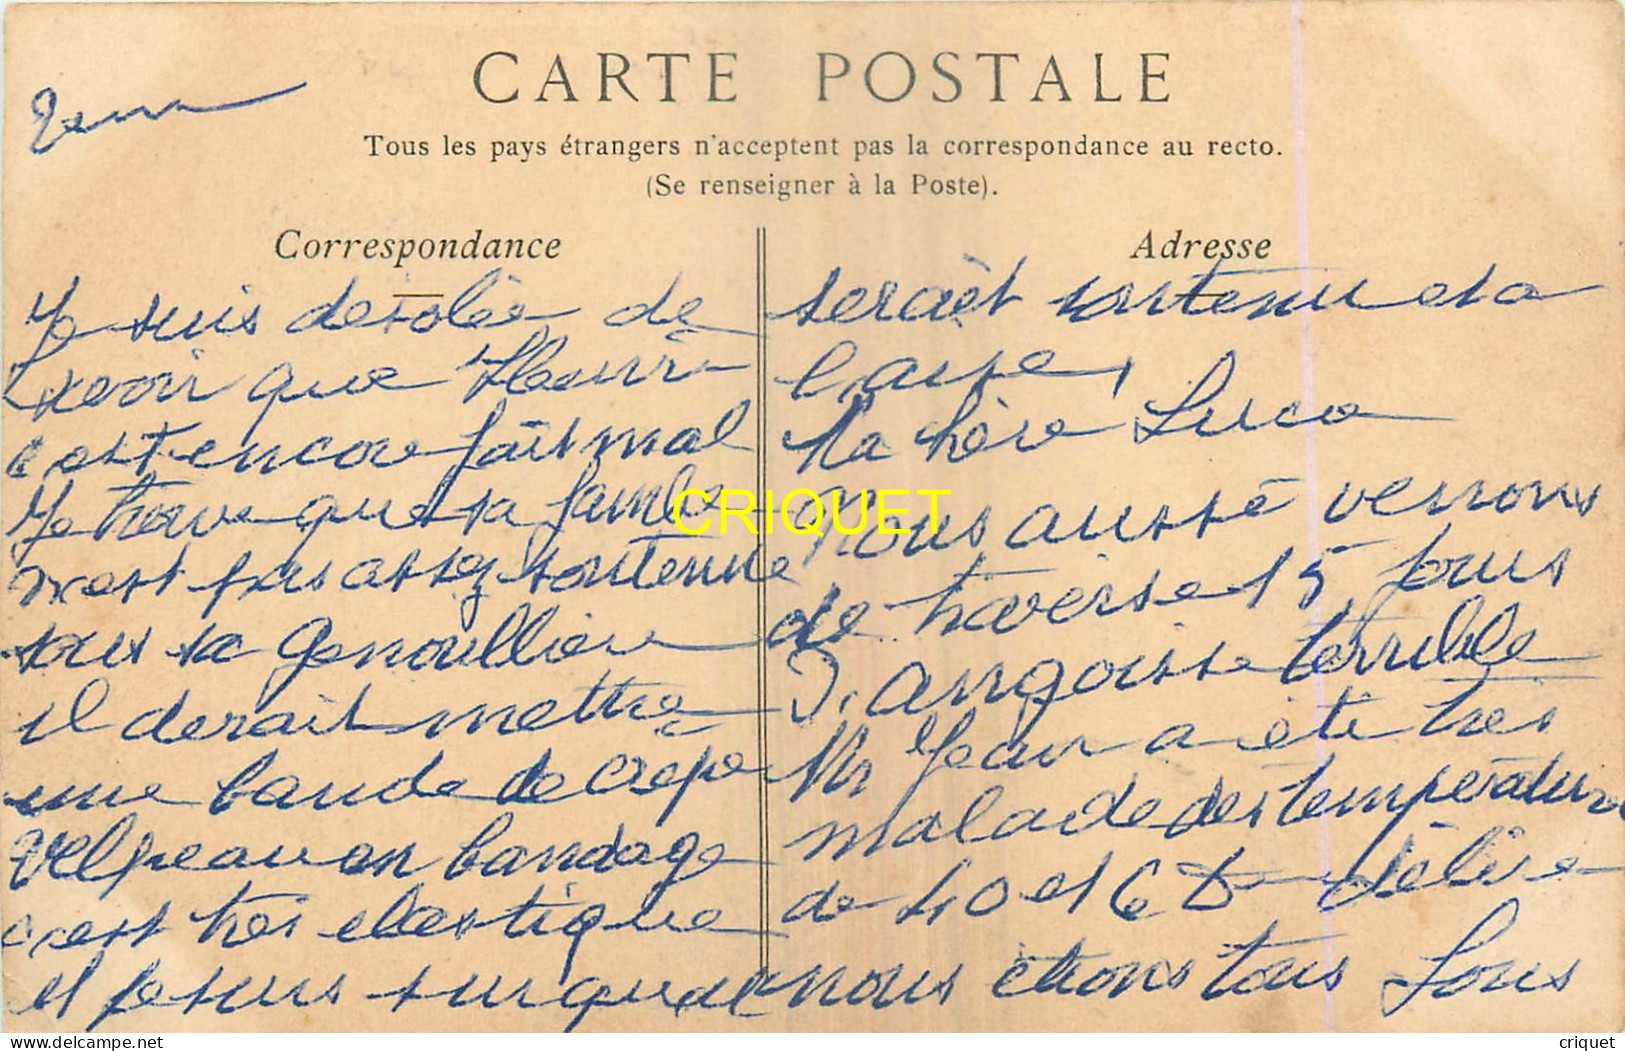 CARTE POSTALE
Tous les pays étrangers n'acceptent pas la correspondance au recto.
(Se renseigner à la Poste).
Correspondance
Je suis desolée de
savoir que Henri
c est encore fait mal
Je trouve que sa jambe
n'est pas assez soutenue
sous sa genouillère
il devrait mettre
une bande de crêpe
Velpeau en bandage
c'est très elastique
et je suis sur que
Adresse
serait soutenu et a
l'aise,
Ma chère Luce
nous aussi venons
de traverse 15 jours
D'angoisse terrible
Mr Jean a été très
malade des temperature
de 40 et 6 délire
nous étions tous fous
CRIQUET
criquet
delcampe.net